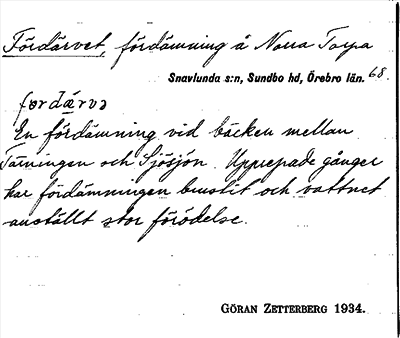 Fördärvet, fördämning å Norra Torpa
Snavlunda s:n, Sundbo hd, Örebro län. 68.
fördärvə
En fördämning vid bäcken mellan
Tärningen och Sjösjön. Upprepade gånger
har fördämningen brustit och vattnet
anställt stor förödelse.
GÖRAN ZETTERBERG 1934.